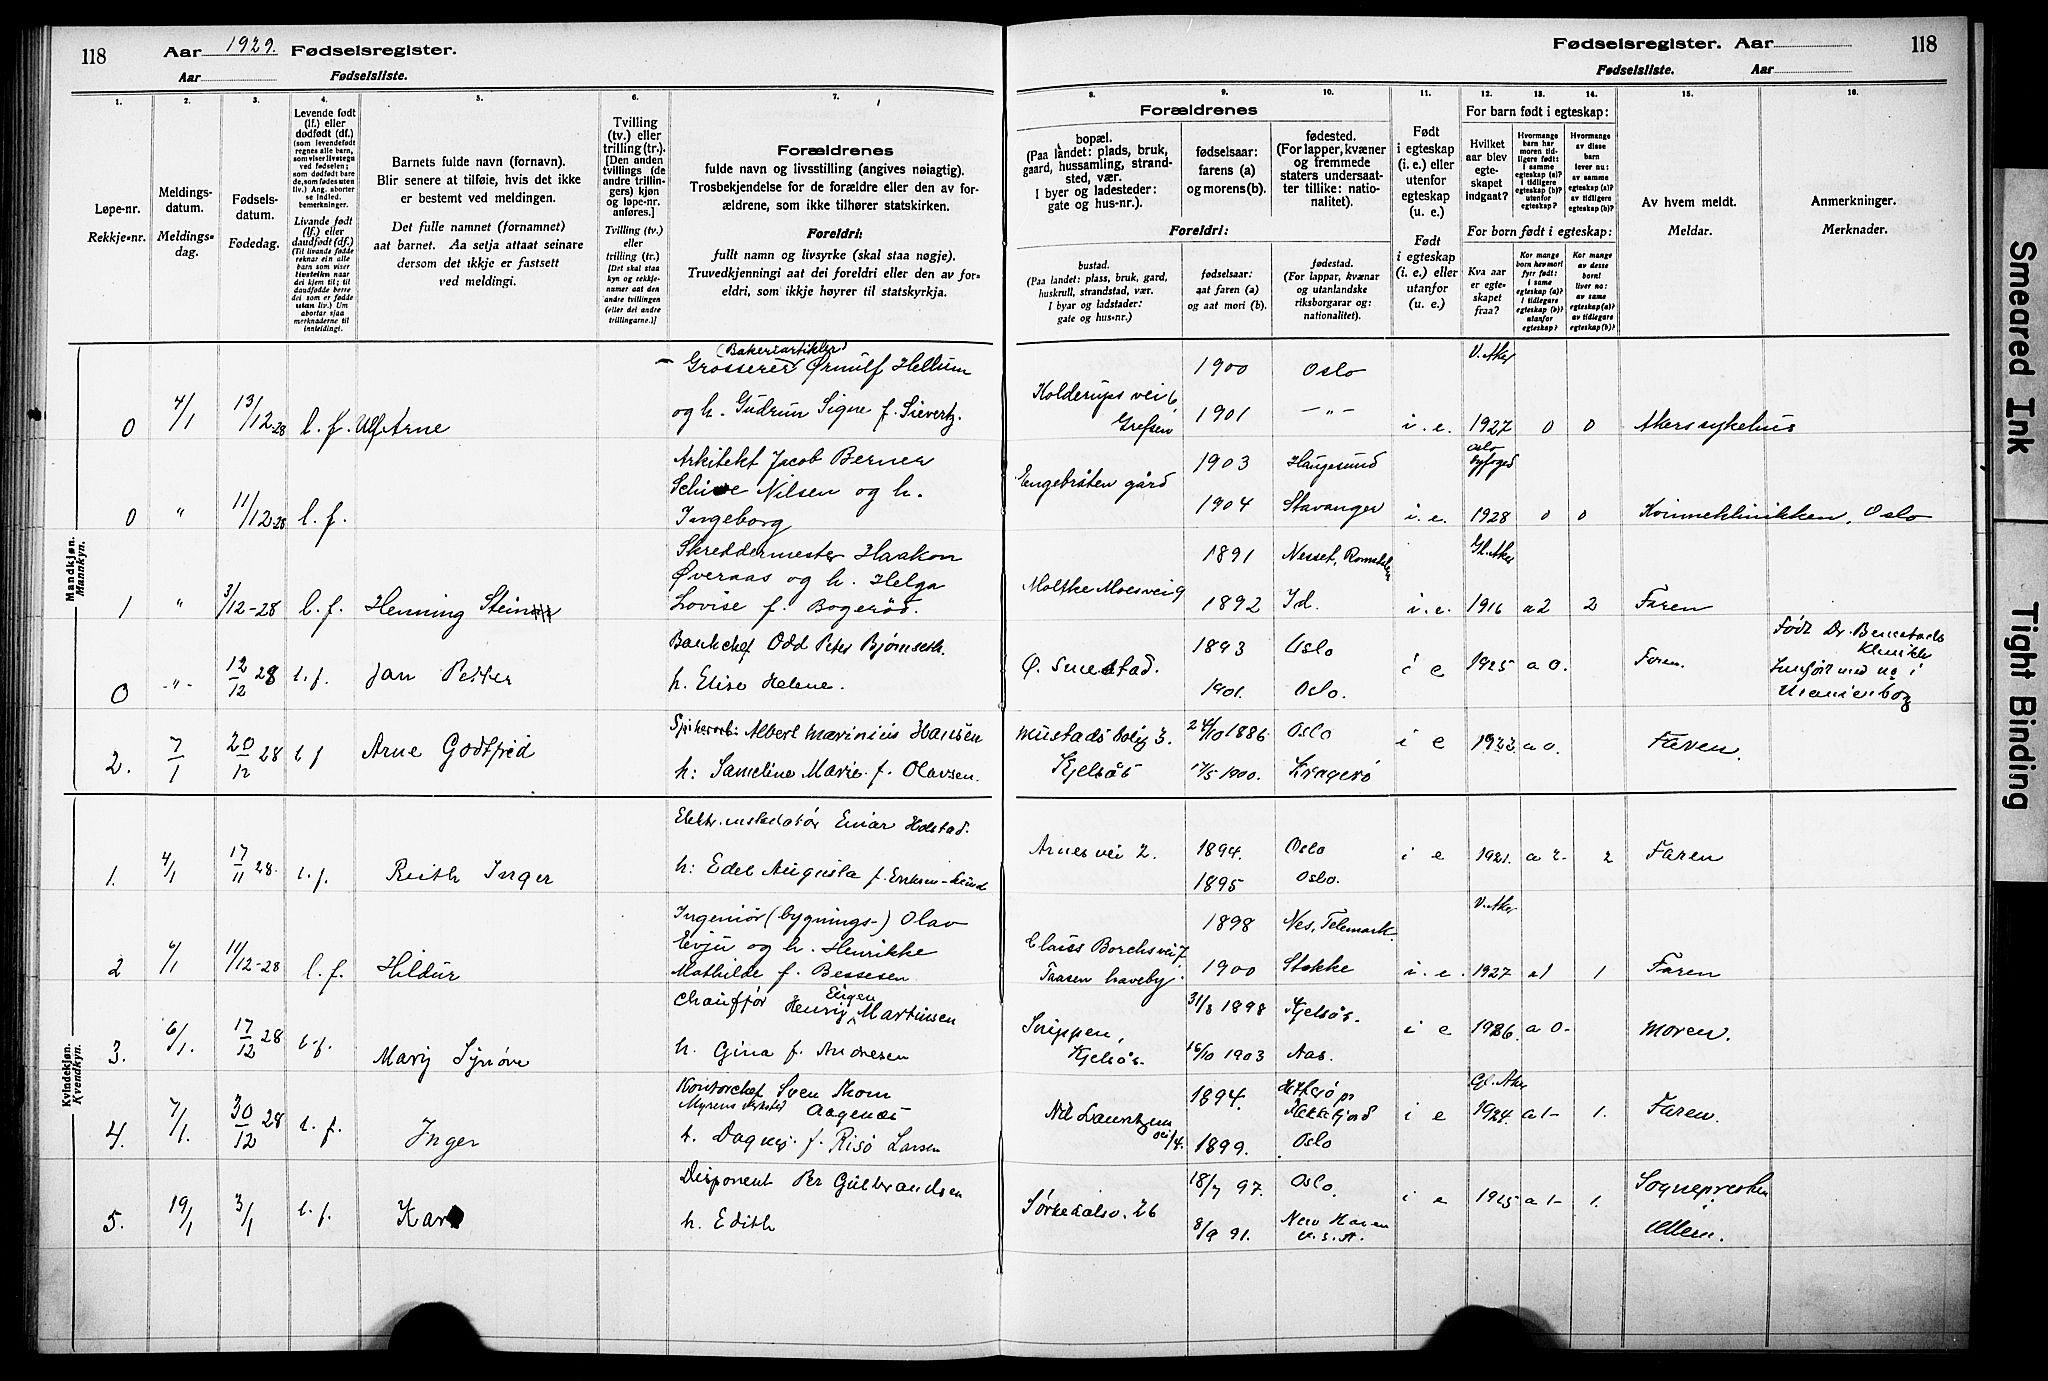 118
Aar 1929. Fødselsregister.
Aar Fødselsliste.
Fødselsregister. Aar
118
Fødselsliste. Aar
1. 2. 3. 4. 5. 6. 7.
Løpe-nr.
Rekkje-nr.
Meldings-
datum.
Meldings-
dag.
Fødsels-
datum.
Fødedag.
Levende født
(lf.) eller
dødfødt (df.)
(som levendefødt
regnes alle barn,
som viser livstegn
ved fødselen;
som dødfødt bare
de, som fødes uten
liv.) Ang. aborter
se indled.
bemerkninger.
Livande født
(lf.) eller
daudfødt (df.)
(Til livande fødde
reknar ein alle
barn som viser
livsteikn naar
dei kjem til; til
daudfødde berre
dei som er fødde
utan liv.) Um
abortar sjaa
merknaderne til
innleidingi.
Barnets fulde navn (fornavn).
Blir senere at tilføie, hvis det ikke
er bestemt ved meldingen.
Det fulle namnet (fornamnet)
aat barnet. Aa setja attaat seinare
dersom det ikkje er fastsett
ved meldingi.
Tvilling
(tv.) eller
trilling (tr.).
[Den anden
tvillings (de
andre trillin-
gers) kjøn
og løpe-nr.
anføres.]
Tvilling (tv.)
eller
trilling (tr.)
[Det skal staa
kyn og rekkje-
numer aat den
andre tvillingen
(eller dei andre
trillingarne.)]
Forældrenes
fulde navn og livsstilling (angives nøiagtig).
Trosbekjendelse for de forældre eller den av for-
ældrene, som ikke tilhører statskirken.
Foreldri:
fullt namn og livsyrke (skal staa nøgje).
Truvedkjenningi aat dei foreldri eller den av for-
eldri, som ikkje høyrer til statskyrkja.
8. 9. 10. 11. 12. 13. 14. 15. 16.
Forældrenes
bopæl.
(Paa landet: plads, bruk,
gaard, hussamling, strand-
sted, vær.
I byer og ladesteder:
gate og hus-nr.).
fødselsaar:
farens (a)
og morens (b).
fødested.
(For lapper, kvæner
og fremmede
staters undersaat-
ter tillike: natio-
nalitet).
Foreldri:
bustad.
(Paa landet: plass, bruk, gard,
huskrull, strandstad, vær.
I byar og ladstader:
gate og hus-nr.)
fødselsaar:
aat faren (a)
og aat mori (b).
fødestad.
(For lappar, kvænar
og utanlandske
riksborgarar og:
nationalitet).
Født
i egteskap
(i. e.) eller
utenfor
egteskap
(u. e.).
Født
i egteskap
(i. e.) eller
utanfor
(u. e.).
For barn født i egteskap:
Hvilket
aar blev
egte-
skapet
indgaat?
Hvormange
barn har
moren tid-
ligere født:
i samme
egteskap (a)?
i tidligere
egteskap (b)?
utenfor
egteskap?
Hvormange
av disse
barn
lever nu:
av samme
egteskap (a)?
av tidligere
egteskap (b)?
For barn født i egteskap:
Kva aar
er egte-
skapet
fraa?
Kor mange
born hev mori
fyrr født:
i same
egteskap (a)?
i tidlegare
egteskap (b)?
utanfor
egteskap?
Kor mange
av desse
borni
liver no:
av same
egteskap (a)?
av tidlegare
egteskap (b)?
Av hvem meldt.
Meldar.
Anmerkninger.
Merknader.
Mandkjøn.
Mannkyn.
0 4/1 13/12-28 l. f. Ulf Arne
(Bakeriartikler)
Grosserer Ørnulf Hellum
og h. Gudrun Signe f. Sievertz.
Kolderupsvei 6
Grefsen
1900 Oslo
1901 -"-
i. e. V. Aker 1927 0 0 Akers sykehus
0 " 11/12-28 l. f.
Arkitekt Jacob Berner
Schive Nilsen og h.
Ingeborg
Engebråten gård
1903 Haugesund
1904 Stavanger
i. e. Oslo
byfoged
1928 0 0 Kvinneklinikken, Oslo
1 " 3/12-28 l. f. Henning Stein
Skreddermester Haakon
Øveraas og h. Helga
Lovise f. Bogerød.
Moltke Moesvei 9
1891 Nesset, Romsdalen
1892 Id.
i. e. Gl. Aker 1916 a2 2 Faren
0 -"- 12/12 28 l. f. Jan Petter
Bankchef Odd Peter Bjørnseth.
h. Elise Helene.
Ø. Smestad.
1893 Oslo
1901. Oslo.
i e 1925 a 0. Faren.
Født Dr. Benestads
Klinikk
Innført med no i
Uranienborg
2. 7/1 20/12 28 l f Arne Godtfred
Spikerarb: Albert Marinius Hansen
h: Sameline Marie f. Olavsen.
Mustads bolig 3.
Kjelsås
24/10 1886. Oslo
17/5 1900. Kragerø
i e 1922 a 0. Faren.
Kvindekjøn.
Kvendkyn.
1. 4/1 17/11 28. l. f. Ruth Inger
Elektr.installatør Einar Holstad.
h: Edel Augusta f. Eriksen-Lund
Arnes vei 2.
1894. Oslo
1895 Oslo.
i e 1921. a 2- 2 Faren
2 6/1 11/12-28 l. f. Hildur
Ingeniør (bygnings-) Olav
Evju og h. Henrikke
Mathilde f. Bessesen
Claus Borchsvei 7
Taasen haveby
1898 Nes, Telemark.
1900 Stokke
i. e. V. Aker 1927 a1 1 Faren
3. 6/1. 17/12 28 l. f. Mary Synøve
Chauffør Henrig Eugen Martinsen
h. Gina f. Andresen
Snippen,
Kjelsås.
31/3 1898 Kjelsås.
16/10 1903 Aas.
i e 1926. a 0- Moren.
4. 7/1. 30/12 28 l. f. Inger
Kontorchef Sven Thom
Myrens Verksted Aagenæs
h. Dagny f. Risø Larsen
Nil Lauritzens
vei 4.
1894. Hitterø pr
Flekkefjord
1899. Oslo
i e Gl. Aker 1924. a 1- 1. Faren.
5. 19/1 3/1 l. f. Kari
Disponent Per Gulbrandsen
h. Edith
Sørkedalsv. 26
18/7 97. Oslo.
8/9 91. New Haven
U.S.A.
i e 1925 a 1- 1. Sognepresten
i Ullern.
Smeared Ink
Tight Binding